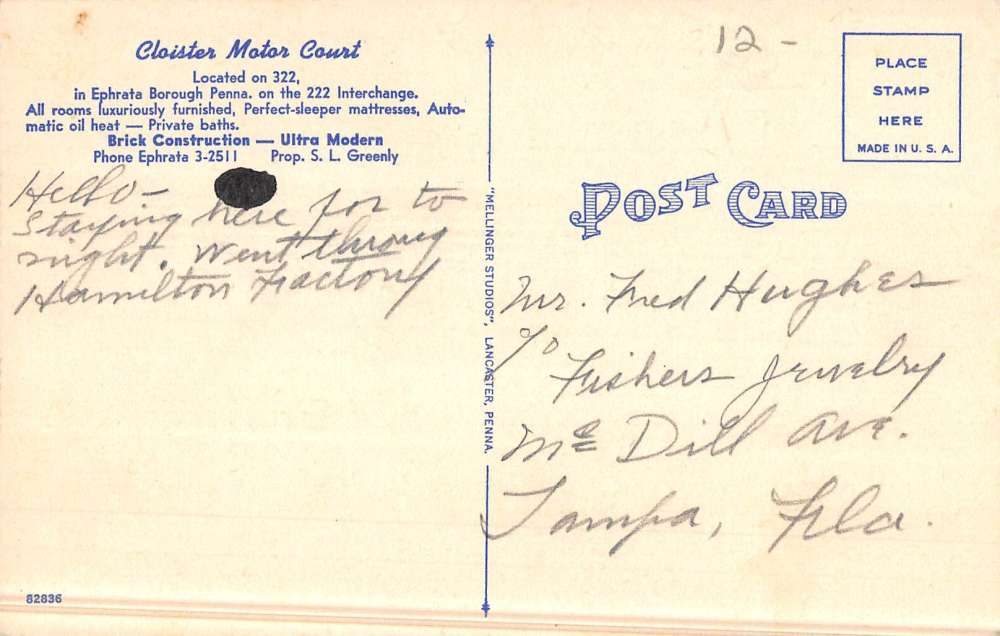 Cloister Motor Court
Located on 322,
in Ephrata Borough Penna. on the 222 Interchange.
All rooms luxuriously furnished, Perfect-sleeper mattresses, Auto-
matic oil heat — Private baths.
Brick Construction — Ultra Modern
Phone Ephrata 3-2511 Prop. S. L. Greenly
Hello –
Staying here for to
night. Went throug
Hamilton Factory
82836
"MELLINGER STUDIOS", LANCASTER, PENNA.
12 –
PLACE
STAMP
HERE
MADE IN U. S. A.
POST CARD
Mr. Fred Hughes
c/o Fishers Jewelry
Mc Dill Ave.
Tampa, Fla.